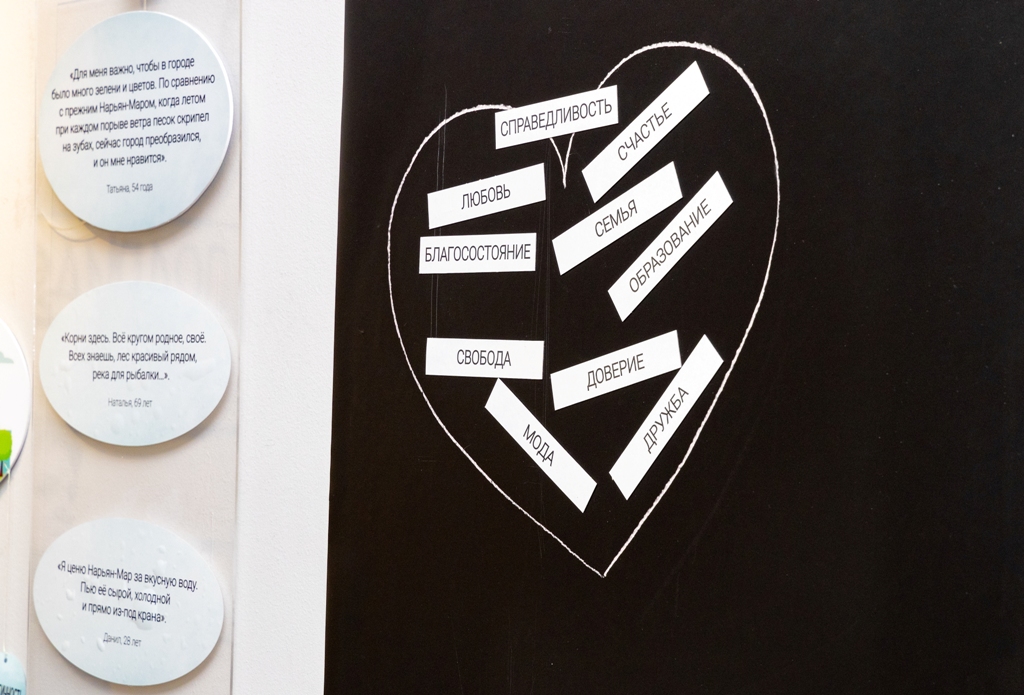 «Для меня важно, чтобы в городе
было много зелени и цветов. По сравнению
с прежним Нарьян-Маром, когда летом
при каждом порыве ветра песок скрипел
на зубах, сейчас город преобразился,
и он мне нравится».
Татьяна, 54 года
«Корни здесь. Всё кругом родное, своё.
Всех знаешь, лес красивый рядом,
река для рыбалки...».
Наталья, 69 лет
«Я ценю Нарьян-Мар за вкусную воду.
Пью её сырой, холодной
и прямо из-под крана».
Данил, 28 лет
СПРАВЕДЛИВОСТЬ
СЧАСТЬЕ
ЛЮБОВЬ
СЕМЬЯ
БЛАГОСОСТОЯНИЕ
ОБРАЗОВАНИЕ
СВОБОДА
ДОВЕРИЕ
МОДА
ДРУЖБА